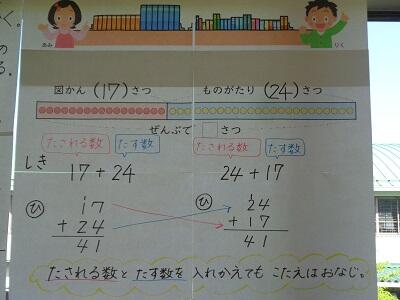 あみ
りく
図かん(17)さつ ものがたり(24)さつ
ぜんぶで□さつ
たされる数 たす数 たされる数 たす数
しき 17+24 24+17
ひ 17 ひ 24
+24 +17
41 41
たされる数と たす数を 入れかえても こたえはおなじ。